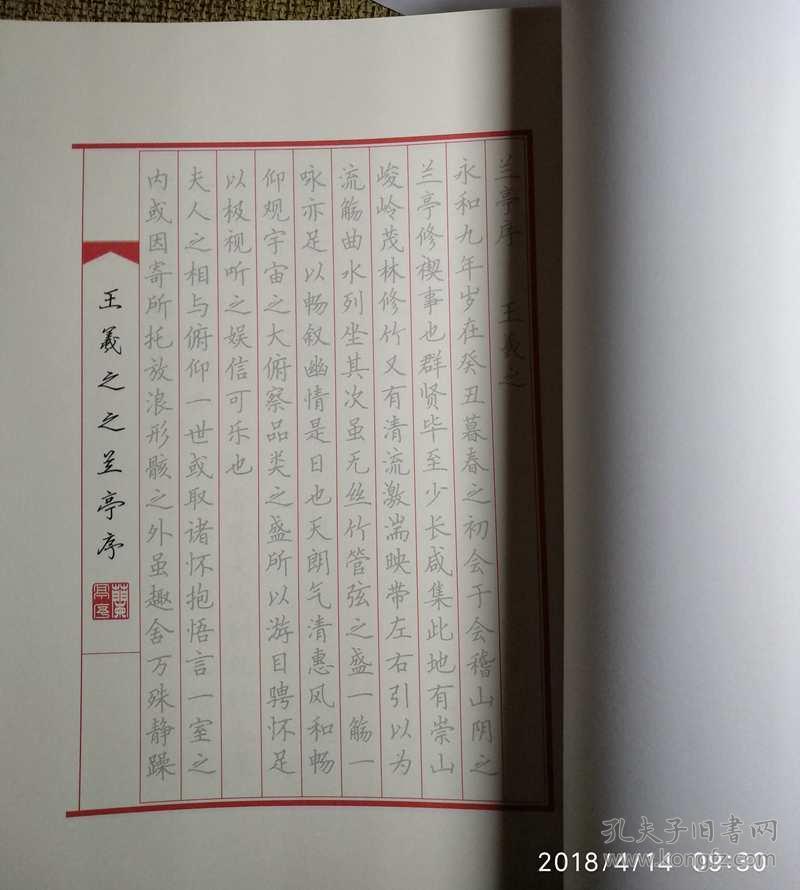 兰亭序 王羲之
永和九年岁在癸丑暮春之初会于会稽山阴之
兰亭修禊事也群贤毕至少长咸集此地有崇山
峻岭茂林修竹又有清流激湍映带左右引以为
流觞曲水列坐其次虽无丝竹管弦之盛一觞一
咏亦足以畅叙幽情是日也天朗气清惠风和畅
仰观宇宙之大俯察品类之盛所以游目骋怀足
以极视听之娱信可乐也
夫人之相与俯仰一世或取诸怀抱悟言一室之
内或因寄所托放浪形骸之外虽趣舍万殊静躁
王羲之之兰亭序
孔夫子旧书网
www.kongfz.com
2018/4/14 09:30